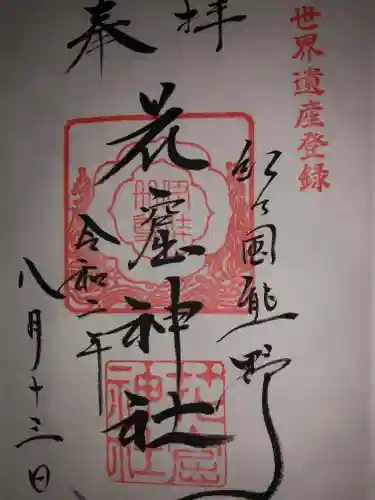 世界遺産登録
奉拝
紀の国熊野
花窟神社
令和二年
八月十三日
花窟神社